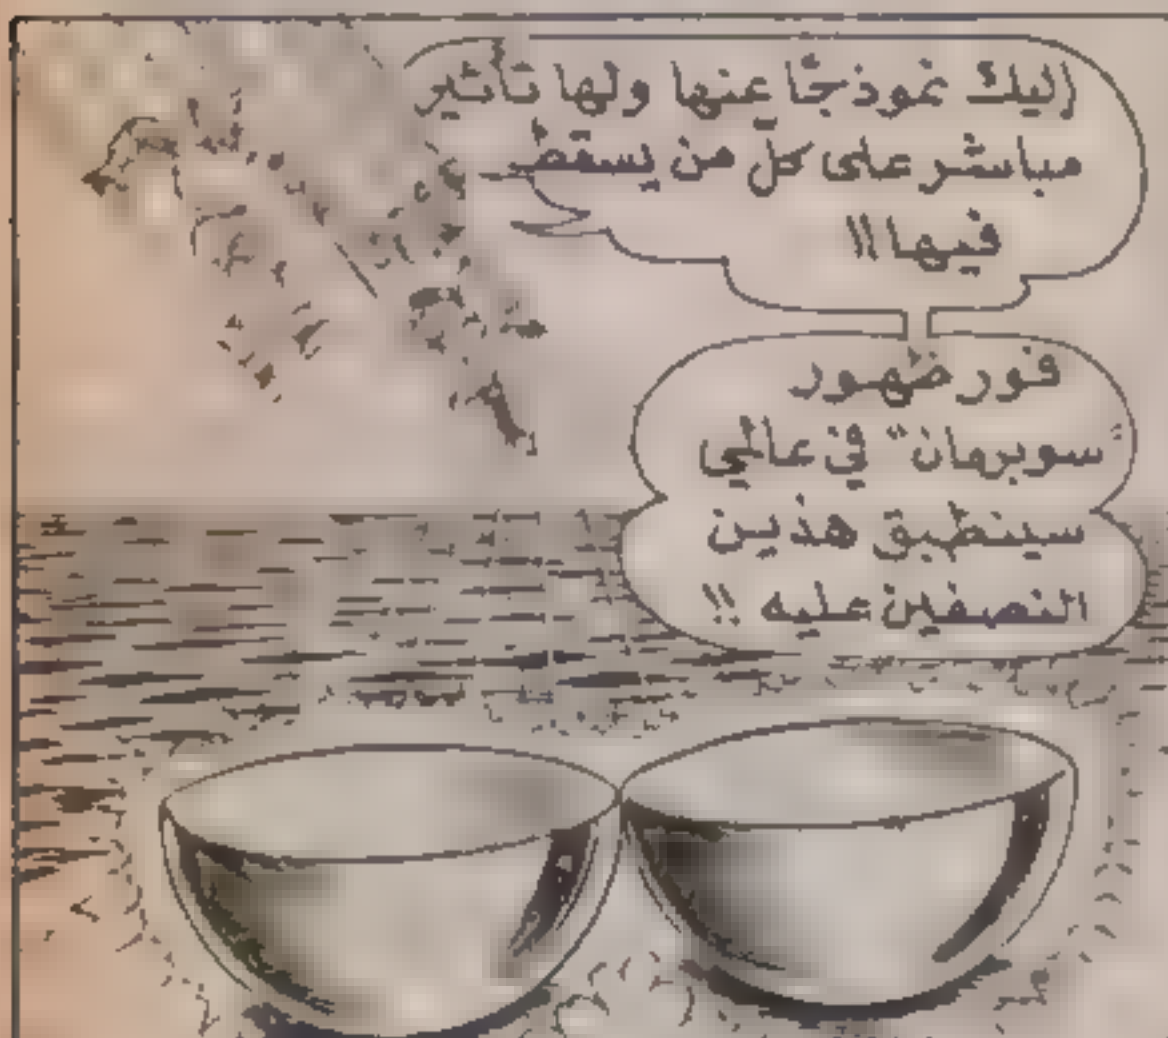 إليك نموذجًا عنها ولها تأثير
مباشر على كلّ من يسقط
فيها !!
فور ظهور
"سوبرمان" في عالمي
سينطبق هذين
النصفين عليه !!